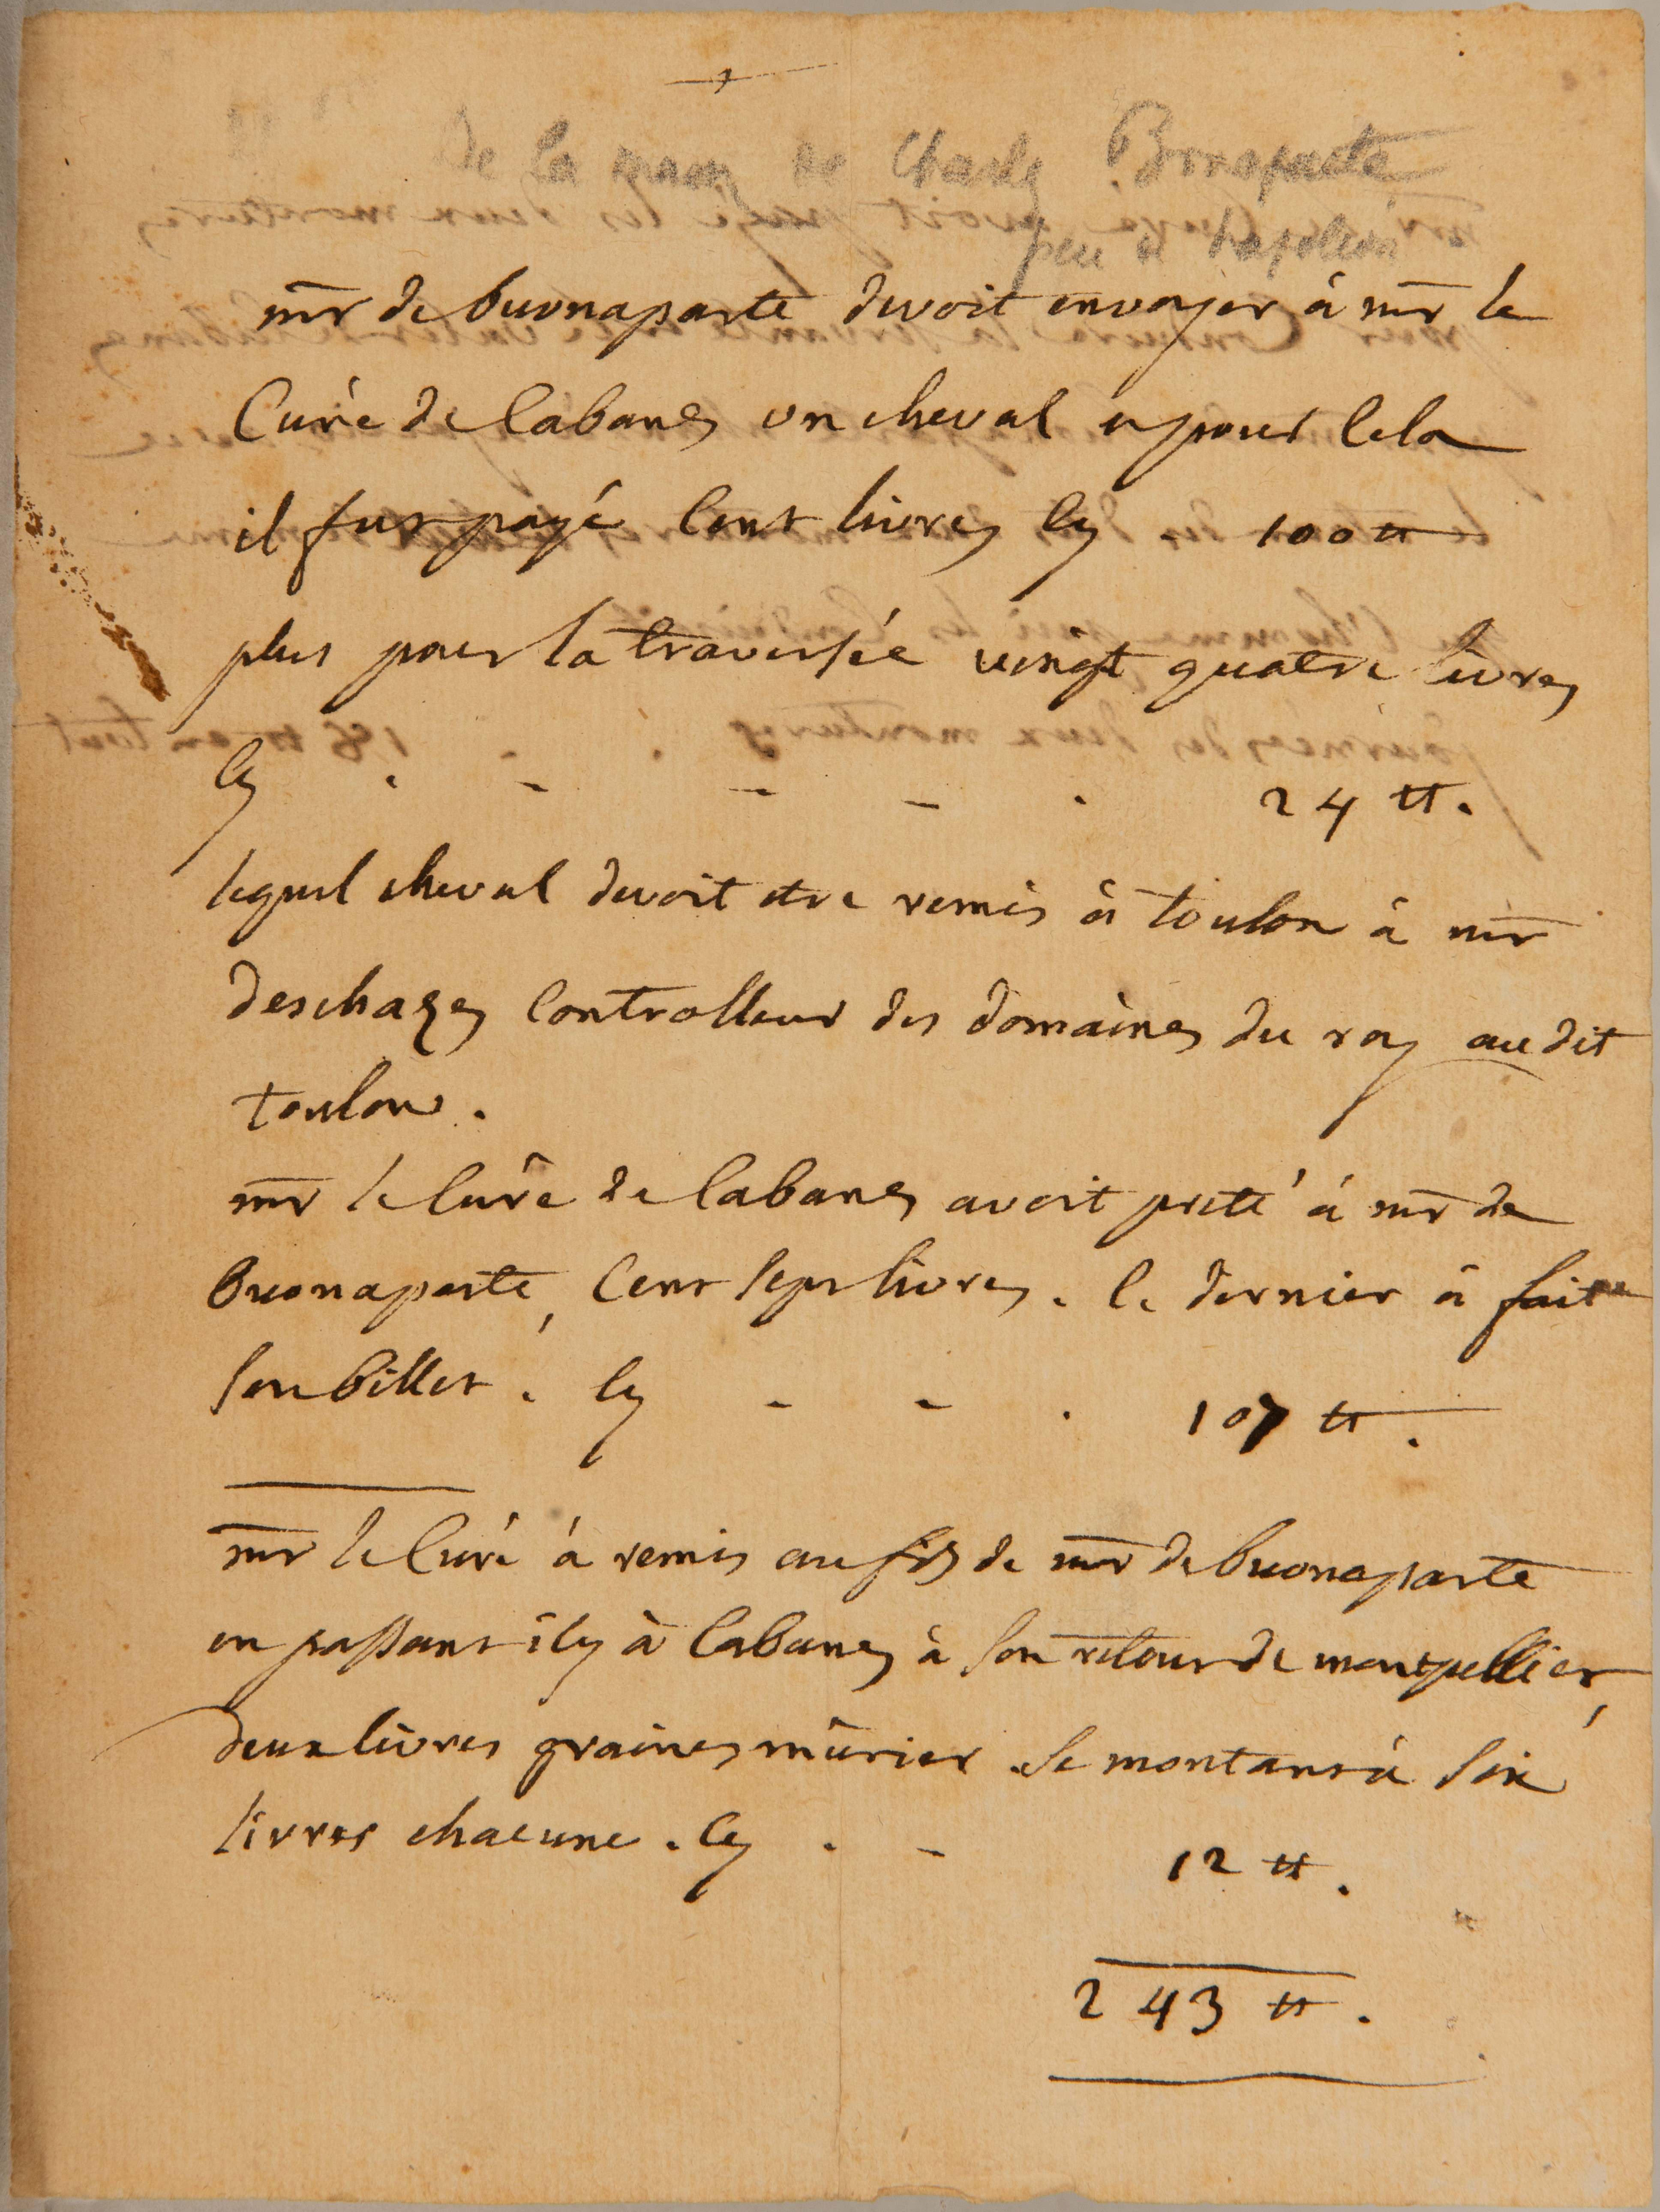 De la main de Charles Bonaparte
pere de Napoléon
mr de buonaparte devoit envoyer à mr le
Curé de Cabanes un cheval et pour Cela
il fut payé Cent livres Cy . 100 ₶
plus pour la traversée vingt quatre livres
Cy . - - - . 24 ₶.
lequel cheval devoit etre remis à toulon à mr
deschazes Controlleur des domaines du roy audit
toulon.
mr le Curé de Cabanes avoit preté à mr de
buonaparte, Cent sept livres. Ce dernier à fait
son billet. Cy - - . 107 ₶.
mr le Curé à remis au fils de mr de buonaparte
en passant icy à Cabanes à son retour de montpellier,
deux livres graines mûrier se montant à six
livres chacune. Cy . - 12 ₶.
243 ₶.